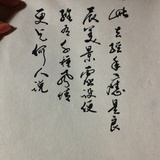 此去经年应是良
辰美景虚设便
纵有千种风情
更与何人说